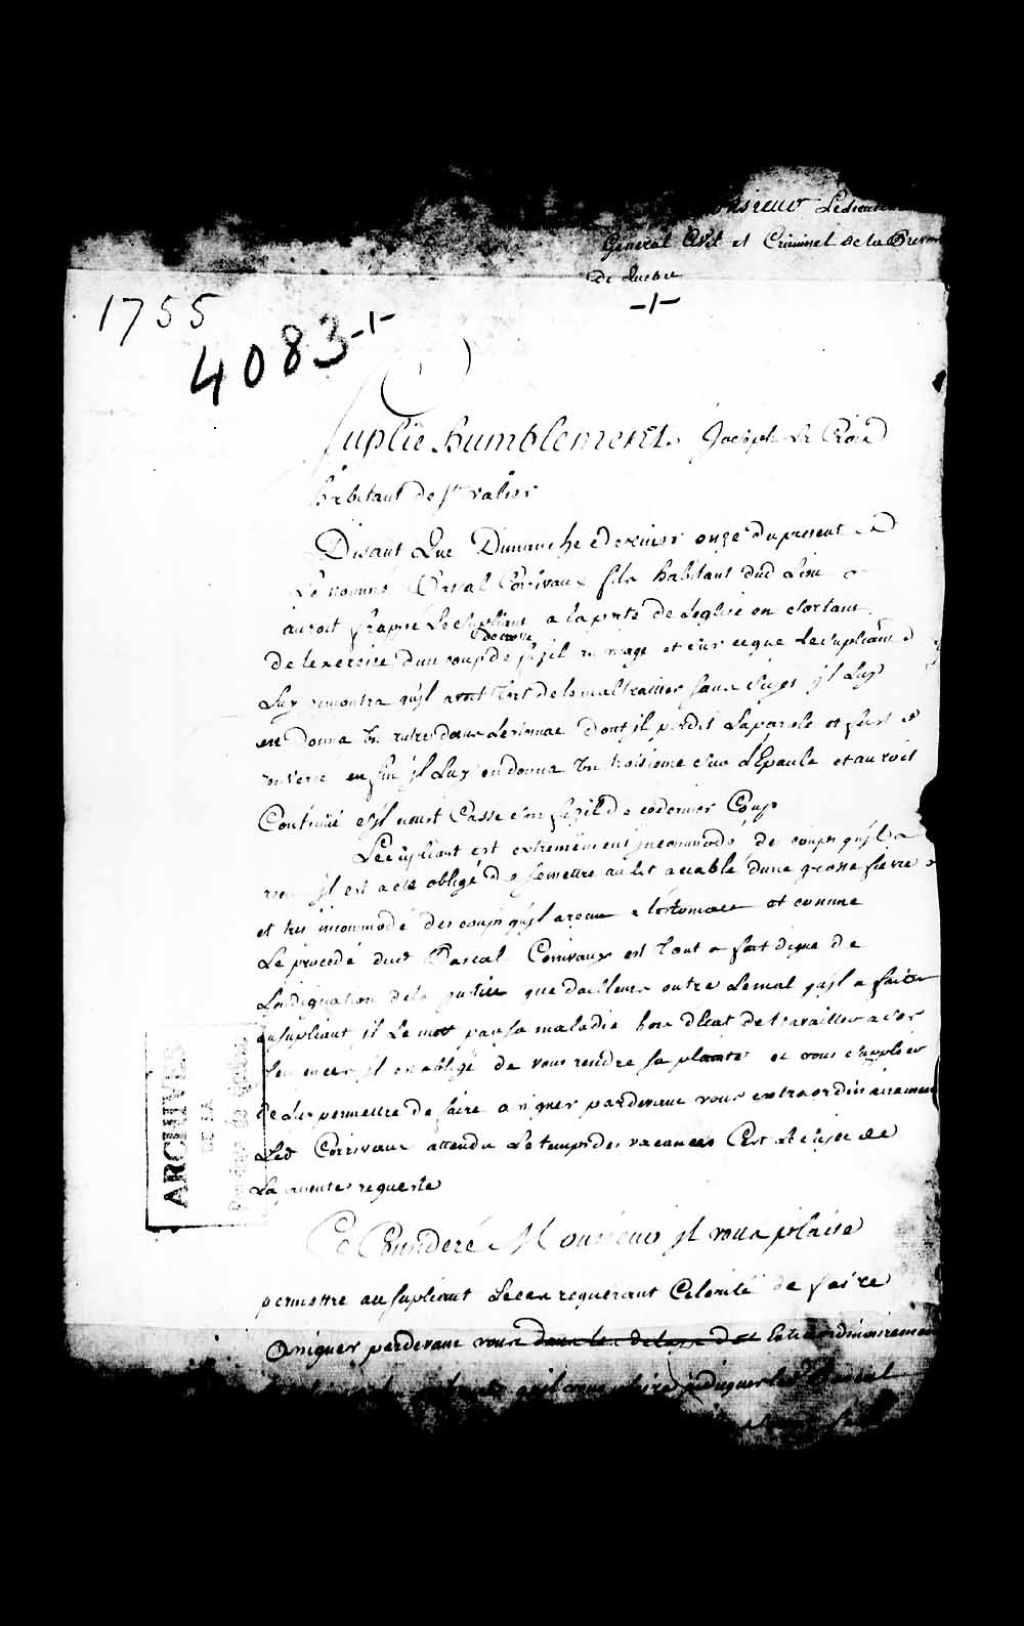 Monsieur Le Lieutenant
General Civil et Criminel de la Prevosté
De Quebec
-1-
1755
4083-1-
Suplie humblement Joseph La Croix
habitant de St valier
Disant Que Dimanche dernier onze du present
Le nommé Pascal Corrivaux fils habitant dud Lieu
auroit frappé Le Supliant a la porte de Leglise en sortant
de lexercice d'un coup de crosse fusil et sur ce que Le supliant
Luy remontra qu'jl avoit tort de le maltraitter sans sujet jl Luy
en donna un autre dans Lestomac dont jl perdit La parole et fust
renversé en fin jl Luy en donna un troisieme sur L'Epaule et auroit
Continué s'jl n'eust Cassé son fusil de ce dernier Coup
Le supliant est extremement jncommodé de coups qu'jl a
recu jl est a été obligé de se mettre au lit accablé d'une grosse fievre
et tres incommodé des coups qu'jl a receu a lestomac et comme
Le procedé dud Pascal Corrivaux est tout a fait digne de
Lindignation de la justice que dailleurs outre Le mal qu'jl a fait
au supliant jl Le met par sa maladie hors d'Etat de travailler a ses
semences jl est obligé de vous rendre sa plainte et vous suplier
de Luy permettre de faire assigner pardevant vous extraordinairement
Led Corrivaux attendu Le temps des vacances C'est Le sujet de
La presente requeste
Ce Consideré Monsieur jl vous plaise
permettre au supliant Le cas requerant Celerité de faire
assigner pardevant vous dans les delays de Extraordinairement
qu'il vous plaira jndiquer led Pascal
ARCHIVES
DE LA